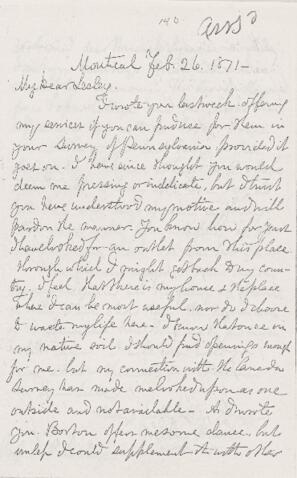 140 Ansd
Montreal Feb. 26. 1871-
My Dear Lesley,
I wrote you last week offering
my services if you can find use for them in
your survey of Pennsylvania, provided it
goes on. I have since thought you would
deem me pressing or indelicate, but I trust
you have understood my motive and will
pardon the manner. You know how for years
I have looked for an outlet from this place
through which I might get back to my coun-
try. I feel that there is my house & the place
where I can be most useful, nor do I choose
to waste my life here - I know that once on
my native soil I should find openings enough
for me, but my connection with the Canadian
survey has made me looked upon as one
outside and not available - As I wrote
you. Boston offers me some chance, but
unless I could supplement it with other